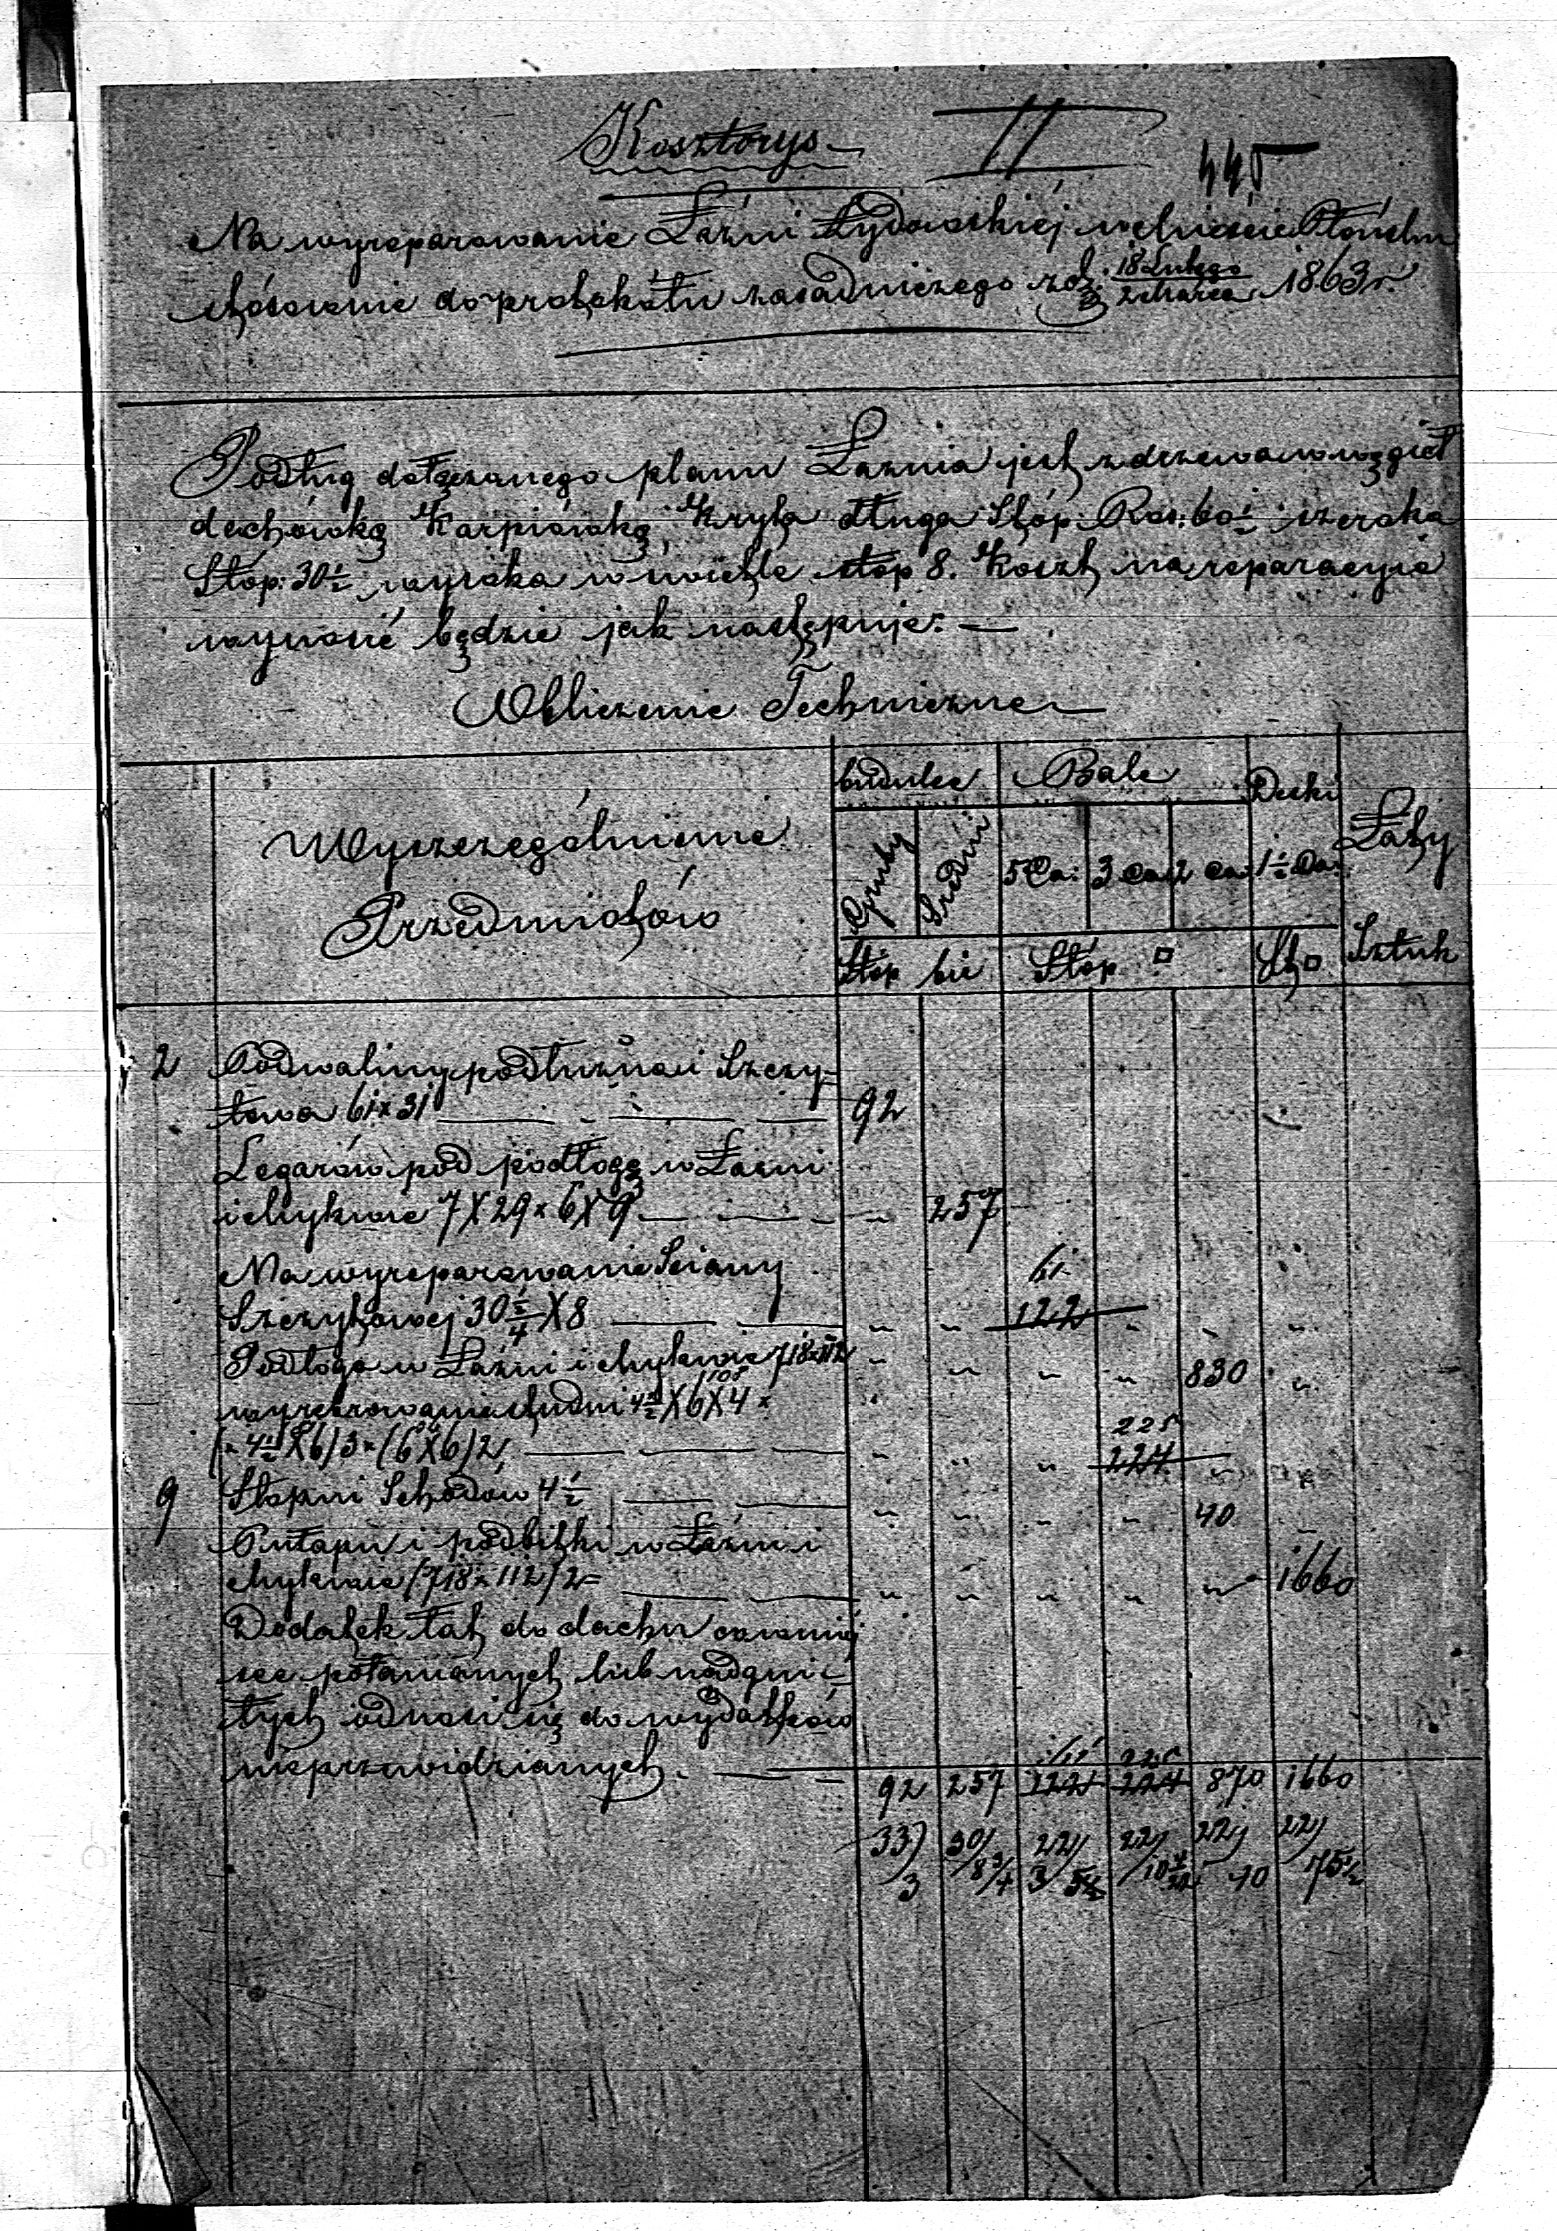 Kosztorys II 445
Na wyreparowanie Łaźni Żydowskiej w Mieście
stósownie do protokółu zasadniczego z d. 18 Lutego / 2 Marca 1863 r.
Podług dołączonego planu Łaznia jest z drzewa w węgieł
dachówką Karpiówką Kryta długa Stóp. Ros: 60 1/2 szeroka
Stóp: 30 1/2 wysoka w świetle stóp 8. Koszt na reparacyie
wynosić będzie jak następuje: —
Obliczenie Techniczne
Wyszczególnienie
Przedmiotów
budulec Bale Deski Łaty
Gruby Średni 5 Ca: 3 Ca 2 Ca 1 1/2 Ca:
Stóp bie Stóp □ St □ Sztuk
2 Podwaliny podłużna i Szczy-
towa 61 x 31 92
Legarów pod podłogę w Łaźni
i Mykwie 7 X 29 x 6 X 9 " 257
Na wyreparowanie Sciany 61
Szczytowej 30 1/2 / 4 X 8 " " 122 " " "
Podłoga w Łaźni i Mykwie 718 x 112 " " " " 830 "
Studni 4 1/2 X 6 X 4 x
x 4 1/2 X 6) 3 x (6 X 6) 2 " " " 225 224 "
9 Stopni Schodów 4 1/2 " " " " 40 "
Pułapu i podbitki w Łaźni i
Mykwie (718 x 112) 2 = " " " " " 1660
Dodatek łat do dachu
połamanych lub nadgni-
łych odnosi się do wydatków
nieprzewidzianych.
92 257 122 225 224 870 1660
33) 30) 22) 22) 22) 22)
3 8 3/4 3 10 40 75 1/2